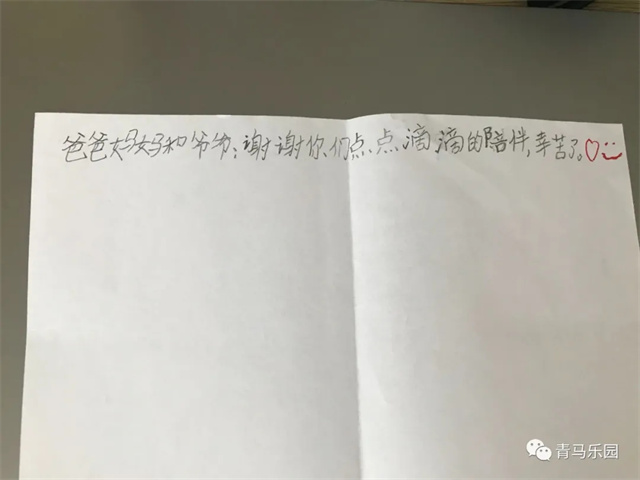 爸爸妈妈和爷爷：谢谢你们点点滴滴的陪伴，幸苦了。
青马乐园